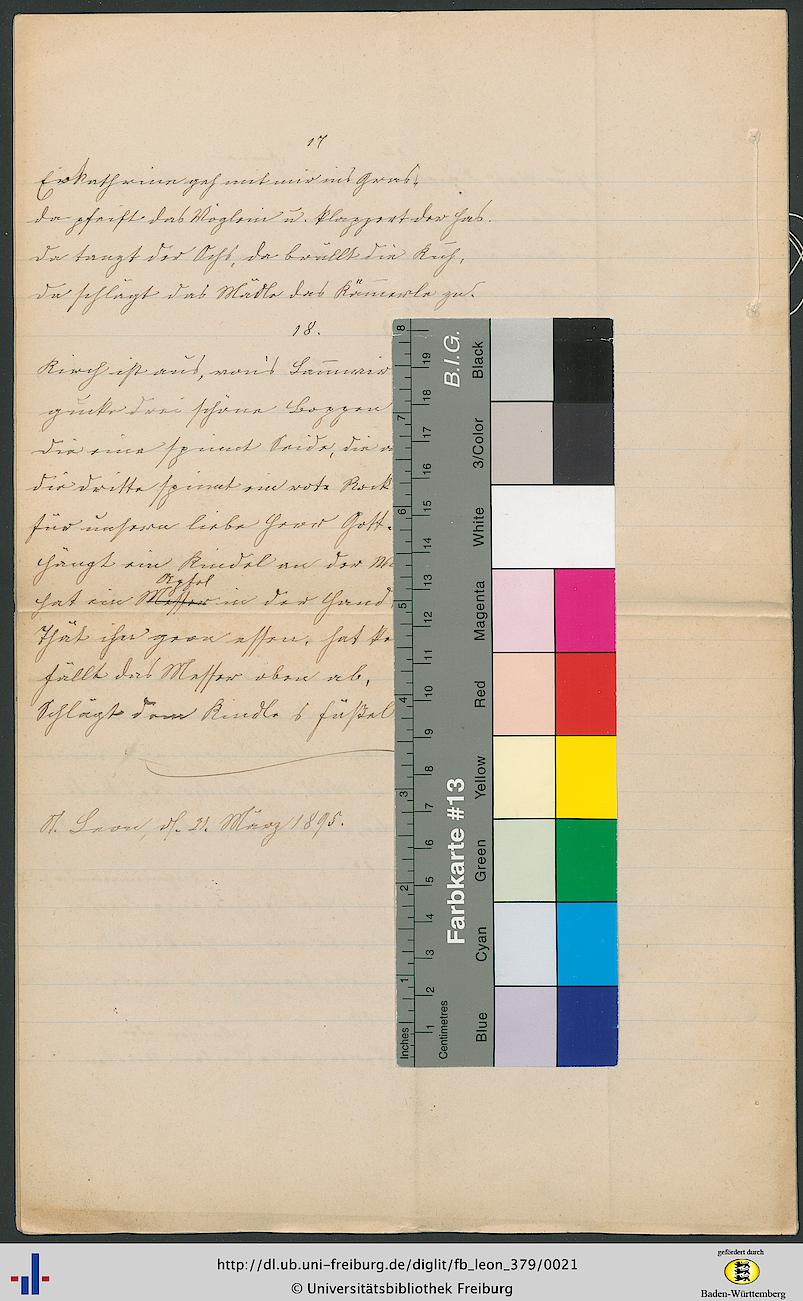 17
Evkathrina geh mit mir ins Gras,
da pfeift das Vöglein u. klappert der Has.
da tanzt der Ochs, da brüllt die Kuh,
da schlägt das Mädle das Kämmerle zu.
18.
Kirch ist aus, von's Lammwir
gucke drei schöne Boppen
die eine spinnt Seide, die a
die dritte spinnt ein rote Rock
für unsern liebe Herr Gott.
hängt ein Kindel an der W
Apfel
hat ein Messer in der Hand
Thät ihn gern essen, hat ke
fällt das Messer oben ab,
Schlägt dem Kindle s füßel
St. Leon, d. 21. März 1895.
B.I.G.
Farbkarte #13
Black
3/Color
White
Magenta
Red
Yellow
Green
Cyan
Blue
Inches 1 2 3 4 5 6 7 8
Centimetres 1 2 3 4 5 6 7 8 9 10 11 12 13 14 15 16 17 18 19
http://dl.ub.uni-freiburg.de/diglit/fb_leon_379/0021
© Universitätsbibliothek Freiburg
gefördert durch
Baden-Württemberg